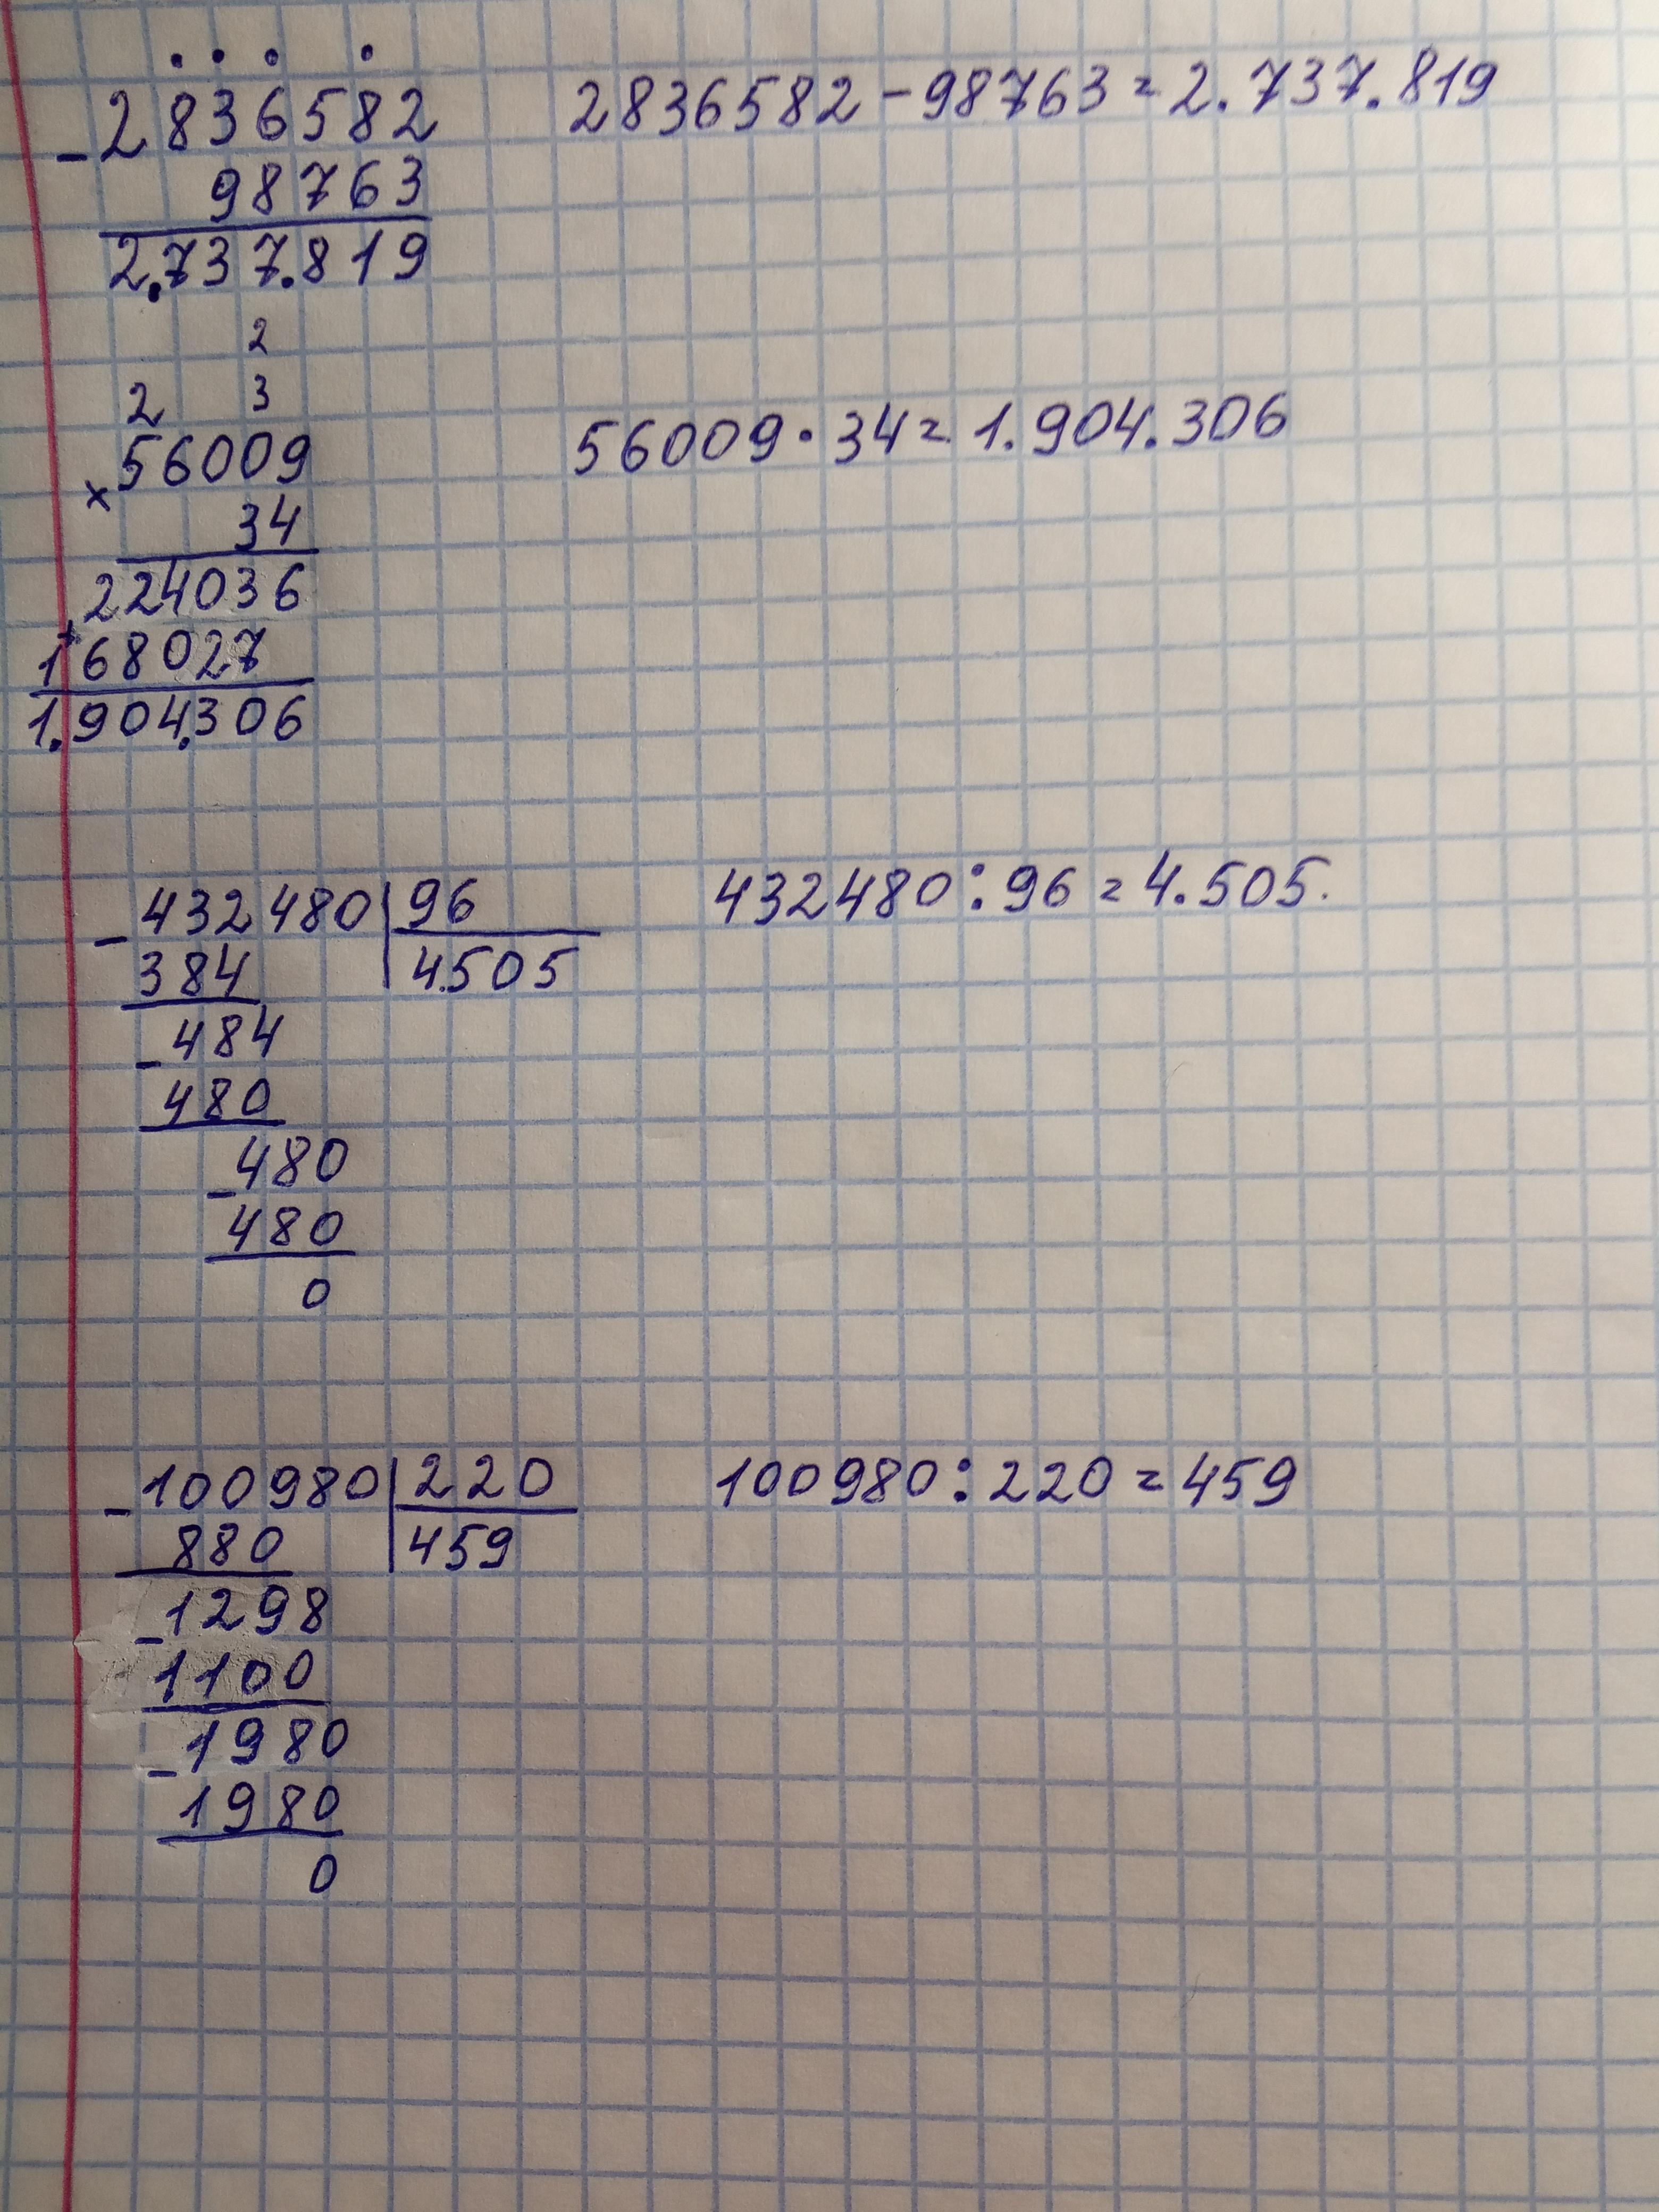 2836582
- 98763
2.737.819
2836582 - 98763 = 2.737.819
2
2 3
56009
× 34
224036
+
168027
1.904.306
56009 · 34 = 1.904.306
- 432480 | 96
384 | 4.505
- 484
480
- 480
480
0
432480 : 96 = 4.505.
- 100980 | 220
880 | 459
- 1298
1100
- 1980
1980
0
100980 : 220 = 459